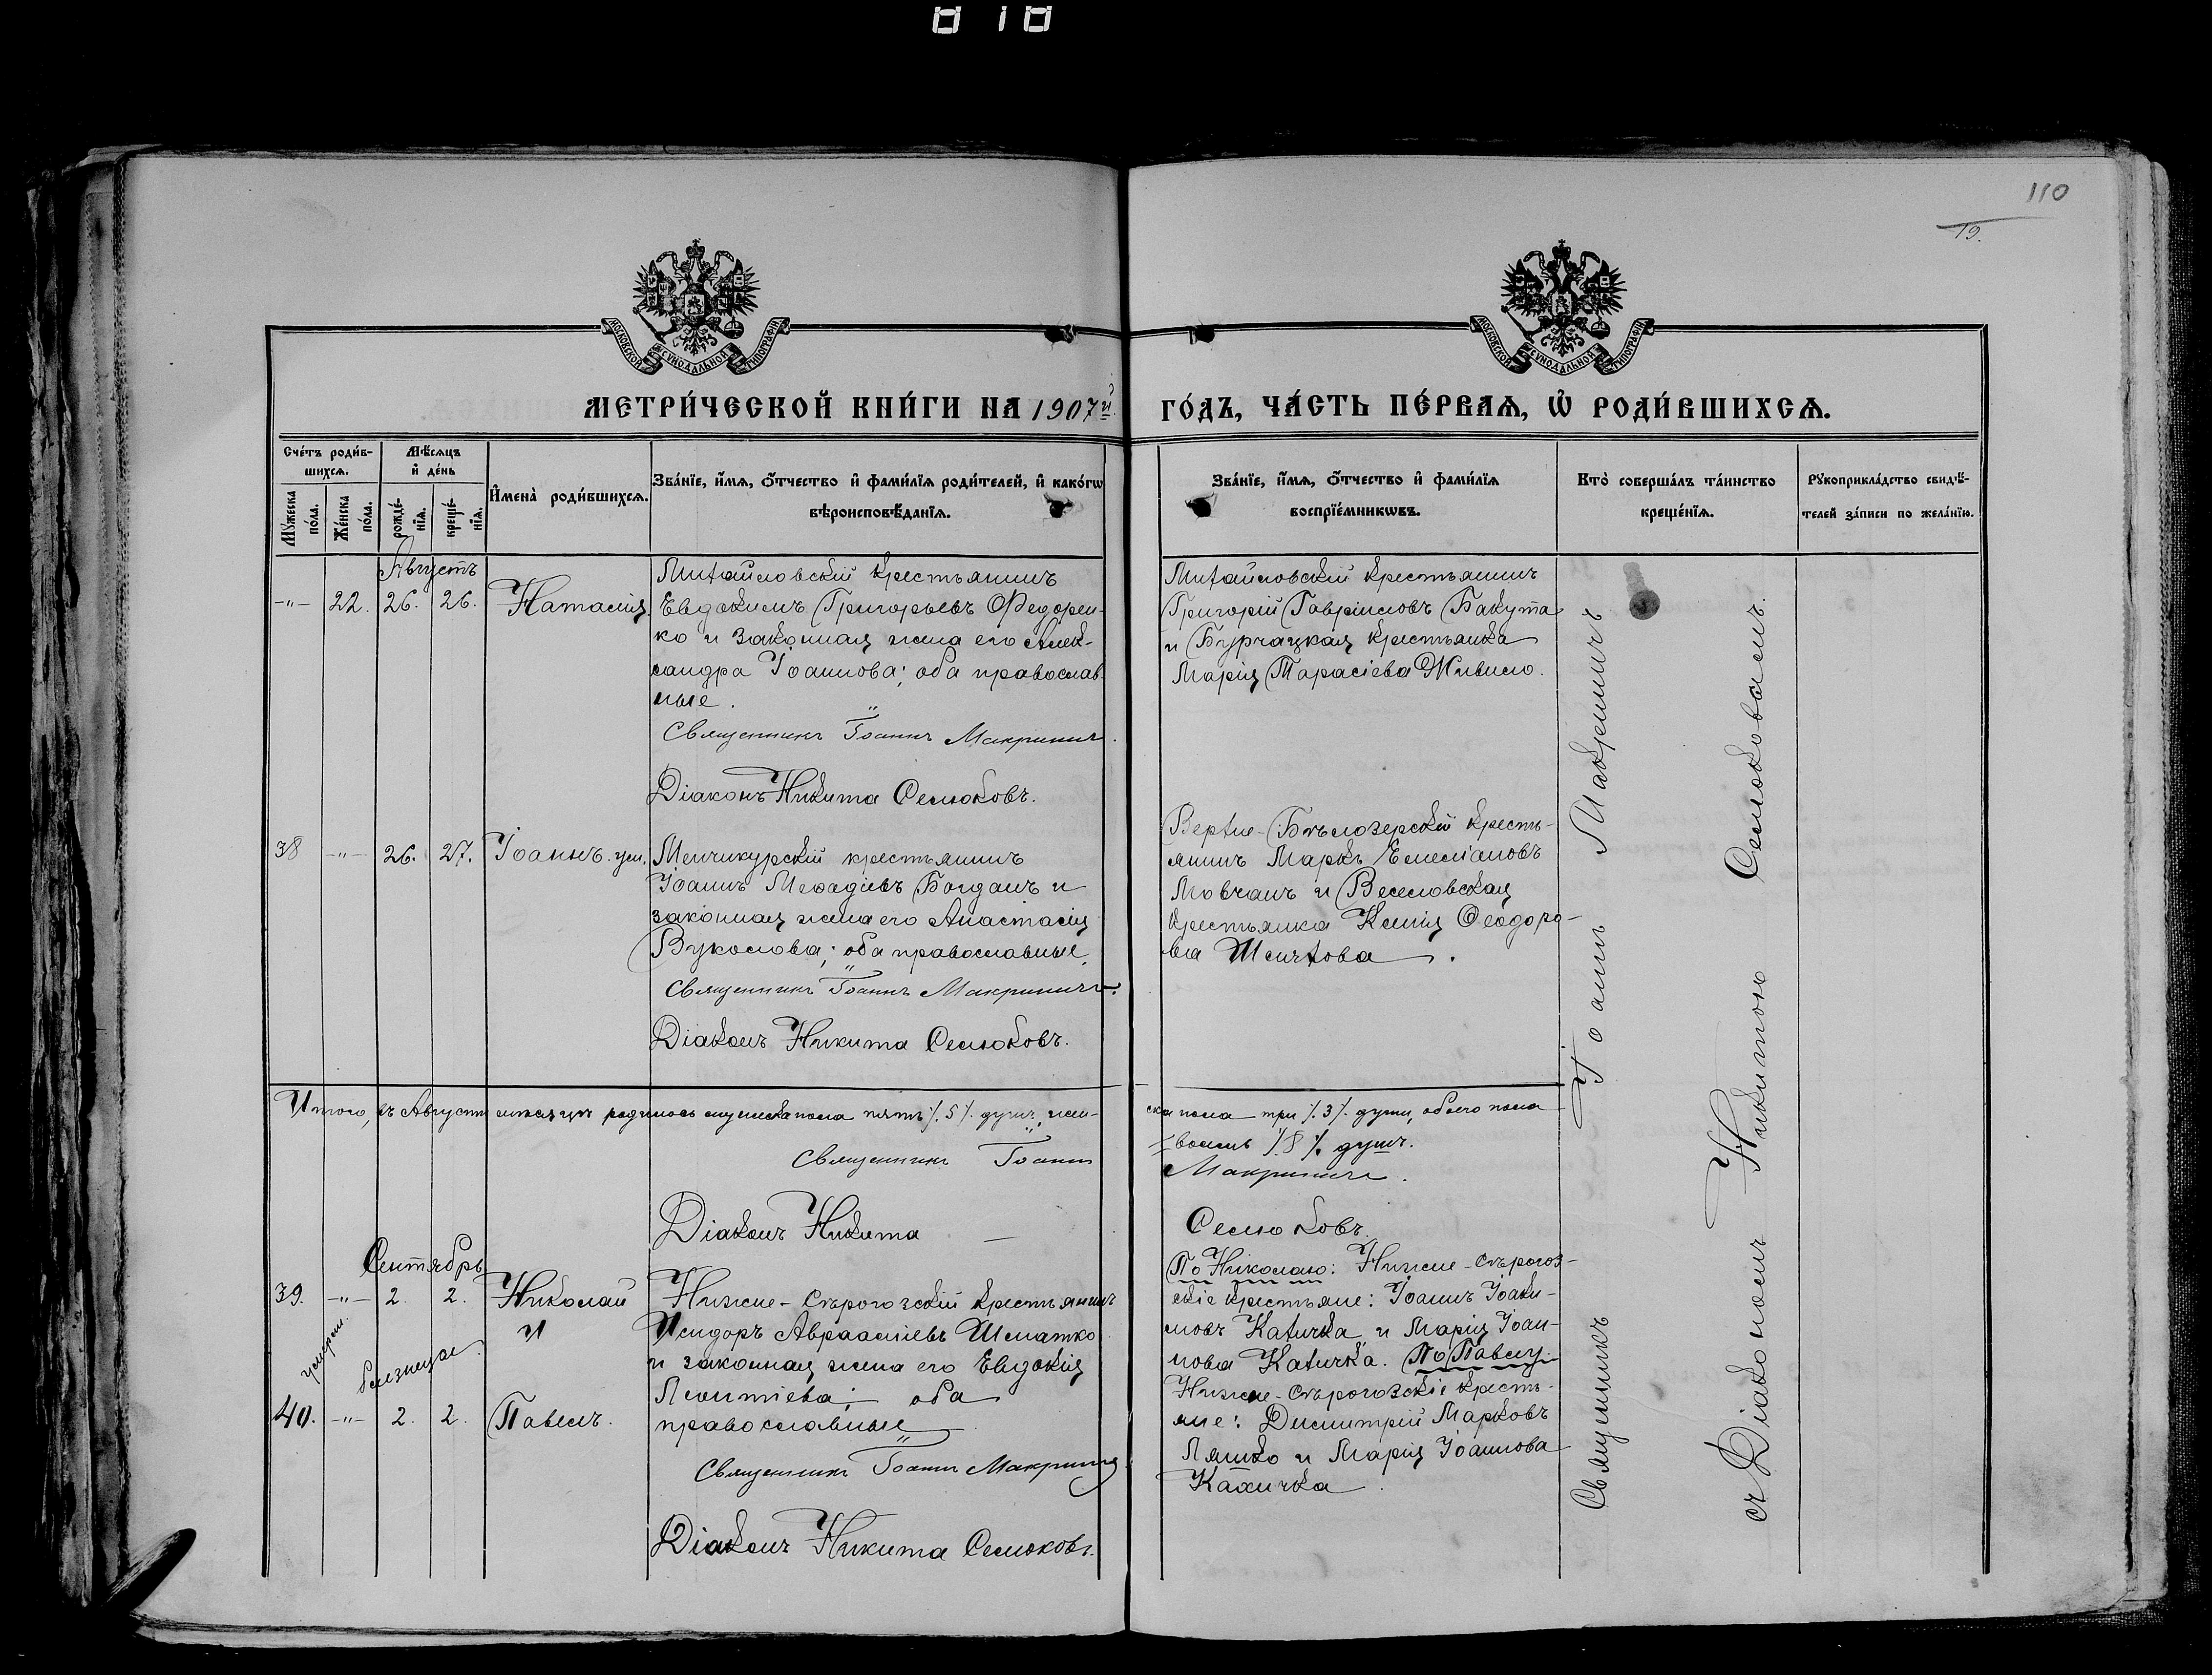 818
110
19.
МОСКОВСКОЙ СѴНОДАЛЬНОЙ ТИПОГРАФІИ
МОСКОВСКОЙ СѴНОДАЛЬНОЙ ТИПОГРАФІИ
МЕТРИ́ЧЕСКОЙ КНИ́ГИ НА 1907й. ГО́ДЪ, ЧА́СТЬ ПЕ́РВАЯ, Ѡ҆ РОДИ́ВШИХСЯ.
Сче́тъ роди́в-
шихся.
Мꙋ́жеска по́ла.
Же́нска по́ла.
Мѣ́сяцъ
и҆ де́нь
рожде́-
нїя.
креще́-
нїя.
И҆мена̀ роди́вшихся.
Зва́нїе, и҆́мя, о҆́тчество и҆ фами́лїя роди́телей, и҆ како́гѡ
вѣроисповѣ́данїя.
Зва́нїе, и҆́мя, о҆́тчество и҆ фами́лїя
воспрїе́мникѡвъ.
Кто̀ соверша́лъ та́инство
креще́нїя.
Рꙋкоприкла́дство свидѣ́-
телей за́писи по жела́нїю.
Августъ
-"- 22. 26. 26. Наталія.
Михайловскій крестьянинъ
Евдокимъ Григорьевъ Федорен-
ко и законная жена его Алек-
сандра Іоаннова; оба православ-
ные.
Священникъ Іоаннъ Макриничъ.
Діаконъ Никита Семюковъ.
Михайловскій крестьянинъ
Григорій Гавриловъ Бакута
и Бурчацкая крестьянка
Марія Тарасіева Живило.
38 -"- 26. 27. Іоаннъ. ум.
Менчикурскій крестьянинъ
Іоаннъ Меѳодіевъ Богданъ и
законная жена его Анастасія
Вуколова; оба православные.
Священникъ Іоаннъ Макриничъ.
Діаконъ Никита Семюковъ.
Верхне-Бѣлозерскій кресть-
янинъ Маркъ Емеліановъ
Мовчанъ и Веселовская
крестьянка Ксенія Ѳеодоро-
ва
Итого, въ Августѣ мѣсяцѣ родилось мужеска пола пять /.5/. душъ, жен-
ска пола три /.3/. души, обоего пола
восемь /.8/. душъ.
Священникъ Іоаннъ Макриничъ.
Діаконъ Никита Семюковъ.
Сентябрь
39. -"- 2. 2. Николай
и
умерли.
близнецы.
40. -"- 2. 2. Павелъ.
Нижне-Сѣрогозскій крестьянинъ
Исидоръ Аврааміевъ Шматко
и законная жена его Евдокія
Леонтіева; оба
православные
Священникъ Іоаннъ Макриничъ
Діаконъ Никита Семюковъ.
По Николаю: Нижне-Сѣрогоз-
скіе крестьяне: Іоаннъ Іоаки-
мовъ Кахичка и Марія Іоан-
нова Кахичка. По Павлу:
Нижне-Сѣрогозскіе кресть-
яне: Димитрій Марковъ
Ляшко и Марія Іоаннова
Кахичка.
Священникъ Іоаннъ Макриничъ
съ Діакономъ Никитою Семюковымъ.